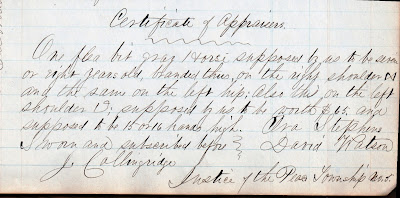 Certificate of Appraisers.
One flea bit gray Horse supposed by us to be seven
or eight years old, branded thus, on the right shoulder
and the same on the left hip; Also thus on the left
shoulder supposed by us to be worth $65. and
supposed to be 15 or 16 hands high. Ora Stephens
Sworn and subscribed before } David Watson
J. Collingridge
Justice of the Peace Township No. 5.